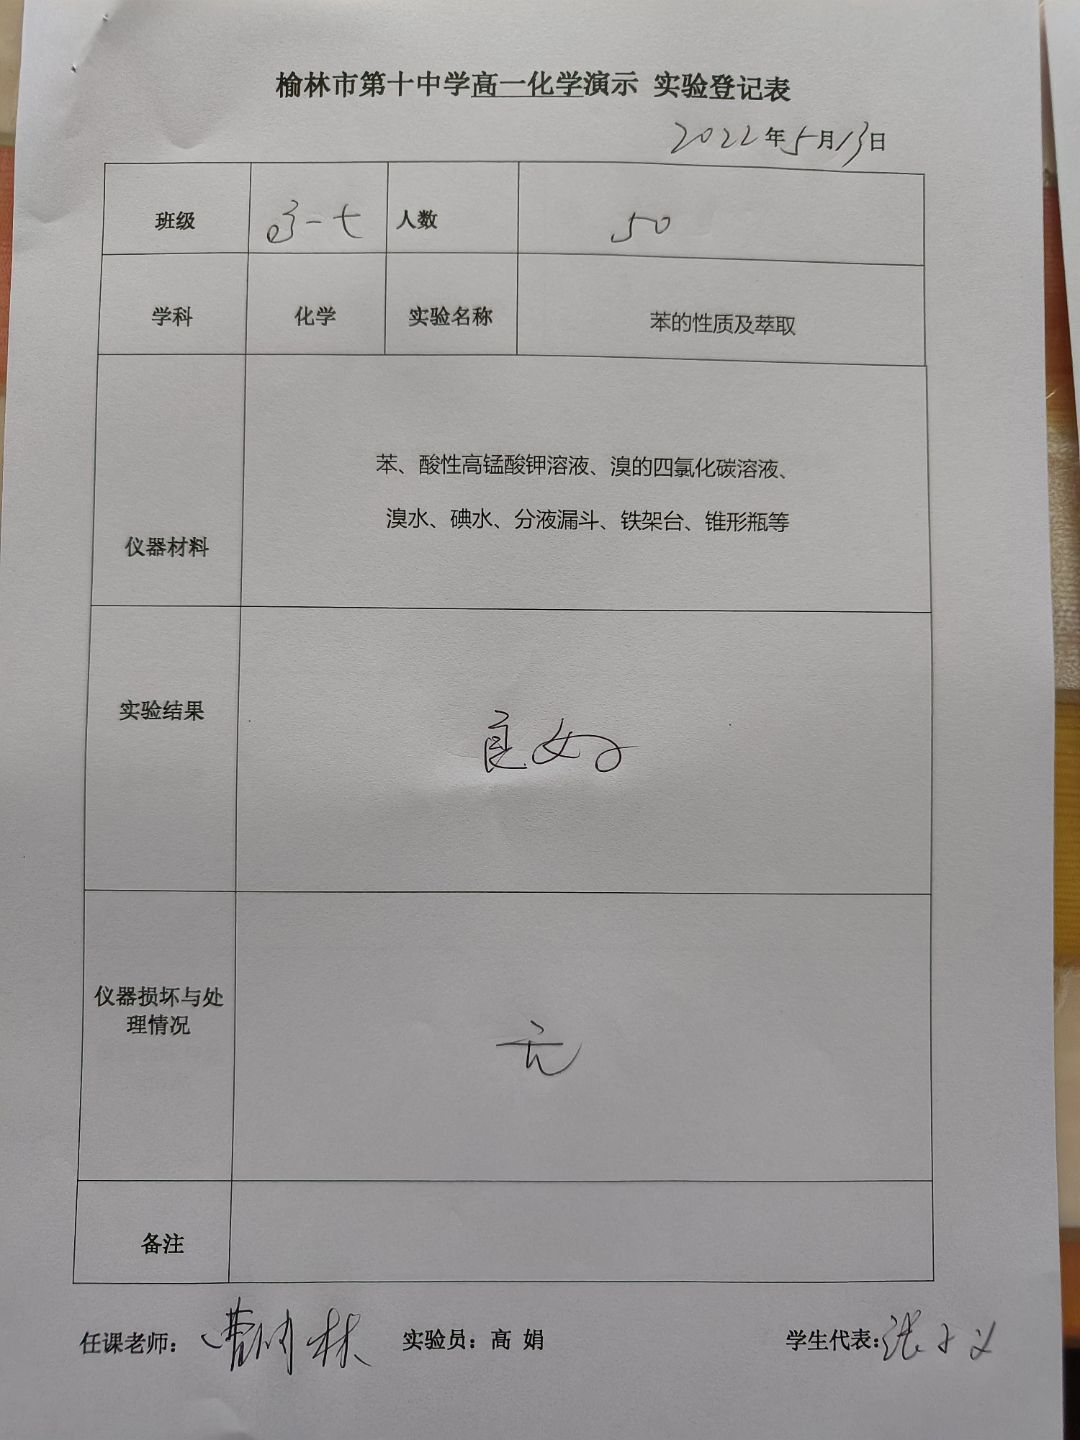 榆林市第十中学高一化学演示 实验登记表
2022年5月13日
班级 高一七 人数 50
学科 化学 实验名称 苯的性质及萃取
苯、酸性高锰酸钾溶液、溴的四氯化碳溶液、
溴水、碘水、分液漏斗、铁架台、锥形瓶等
仪器材料
实验结果 良好
仪器损坏与处
理情况
无
备注
任课老师： 实验员：高 娟 学生代表：